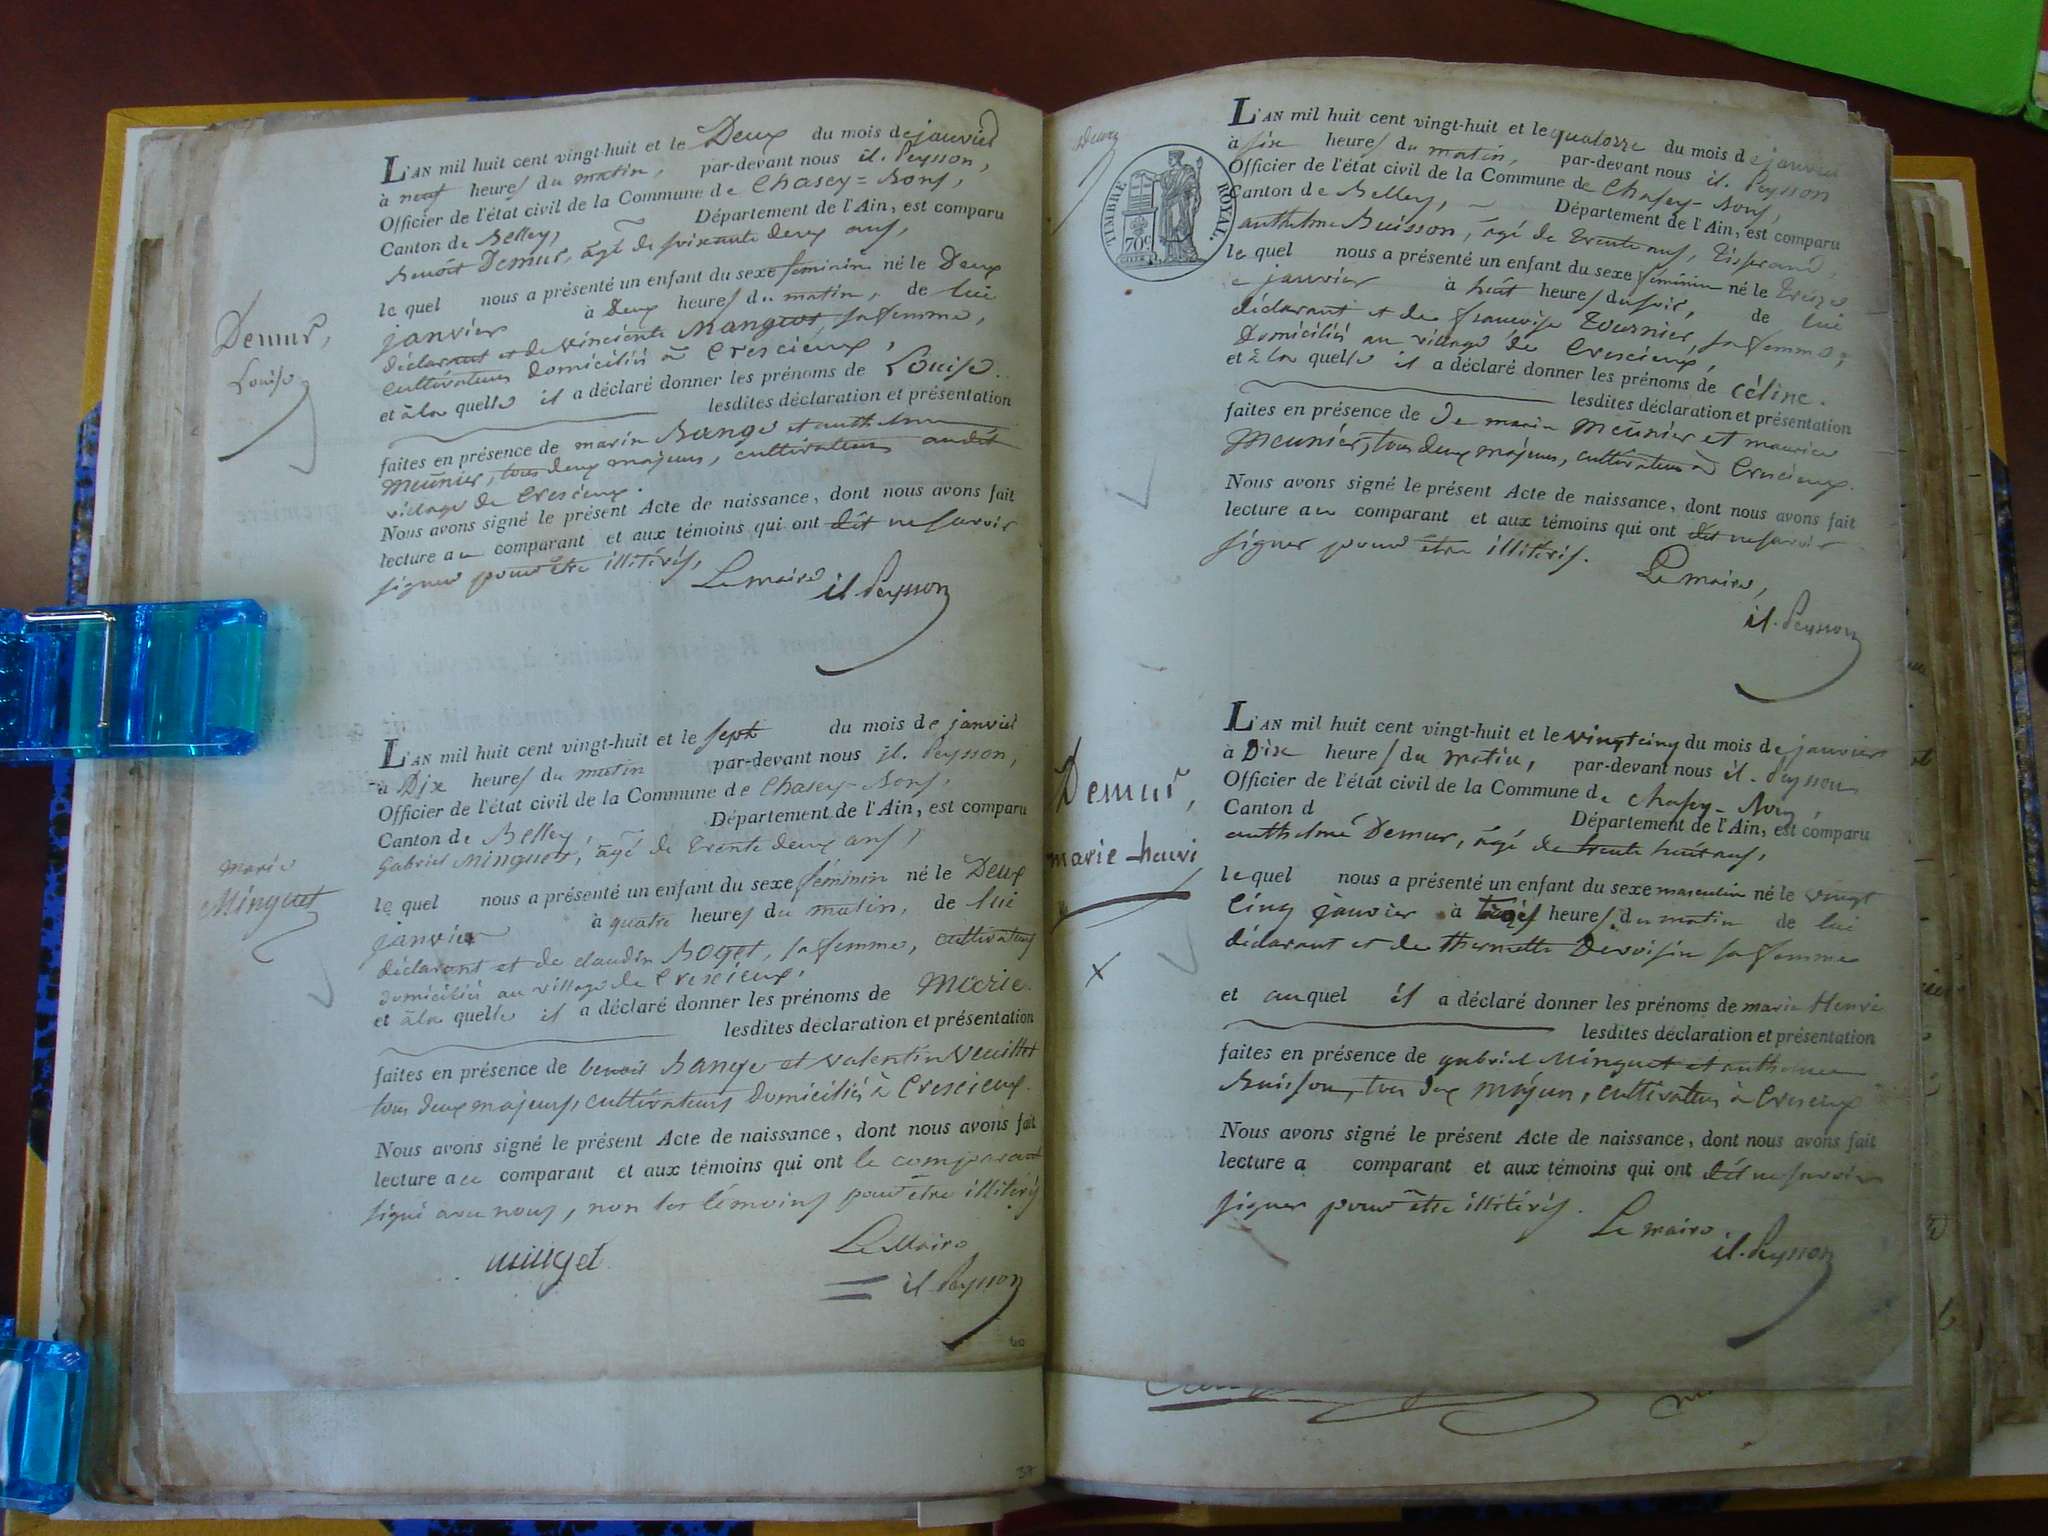 L'AN mil huit cent vingt-huit et le Deux du mois de janvier
à neuf heures du matin, par-devant nous il. Peysson,
Officier de l'état civil de la Commune de Chasey=Bons,
Canton de Belley, Département de l'Ain, est comparu
Benoît Demur, âgé de soixante deux ans,
le quel nous a présenté un enfant du sexe féminin né le Deux
janvier à Deux heures du matin, de lui
déclarant et de vincente Manguet, sa femme,
cultivateurs domiciliés à Crescieux,
et à la quelle il a déclaré donner les prénoms de Louise.
lesdites déclaration et présentation
faites en présence de marin Bange et anthelme
Meunier, tous deux majeurs, cultivateurs audit
village de Crescieux.
Nous avons signé le présent Acte de naissance, dont nous avons fait
lecture au comparant et aux témoins qui ont dit ne savoir
signer pour être illitérés,
Le maire
il Peysson
Demur,
Louise
L'AN mil huit cent vingt-huit et le sept du mois de janvier
à Dix heures du matin par-devant nous il. Peysson,
Officier de l'état civil de la Commune de Chasey-Bons,
Canton de Belley, Département de l'Ain, est comparu
gabriel Minguet, âgé de trente deux ans,
le quel nous a présenté un enfant du sexe féminin né le Deux
janvier à quatre heures du matin, de lui
déclarant et de claudin Roget, sa femme, cultivateurs
domiciliés au village de Crescieux,
et à la quelle il a déclaré donner les prénoms de Marie.
lesdites déclaration et présentation
faites en présence de benoit Bange et valentin Veuillet
tous deux majeurs, cultivateurs domiciliés à Crescieux.
Nous avons signé le présent Acte de naissance, dont nous avons fait
lecture au comparant et aux témoins qui ont le comparant
signé avec nous, non les témoins pour être illitérés
minget
Le Maire
il Peysson
marie
Minguet
60
38
TIMBRE ROYAL.
70c
L'AN mil huit cent vingt-huit et le quatorze du mois de janvier
à six heures du matin, par-devant nous il. Peysson
Officier de l'état civil de la Commune de Chasey-Bons,
Canton de Belley, Département de l'Ain, est comparu
anthelme Buisson, âgé de trente ans, tisserand,
le quel nous a présenté un enfant du sexe féminin né le treize
janvier à huit heures du soir, de lui
déclarant et de françoise Tournier, sa femme,
Domiciliés au village de Crescieux,
et à la quelle il a déclaré donner les prénoms de céline.
lesdites déclaration et présentation
faites en présence de De marin Meunier et maurice
Meunier, tous deux majeurs, cultivateurs à Crescieux.
Nous avons signé le présent Acte de naissance, dont nous avons fait
lecture au comparant et aux témoins qui ont dit ne savoir
signer pour être illitérés.
Le maire,
il. Peysson
L'AN mil huit cent vingt-huit et le vingt cinq du mois de janvier
à Dix heures du matin, par-devant nous il. Peysson
Officier de l'état civil de la Commune de chasey-Bons,
Canton d Département de l'Ain, est comparu
anthelme Demur, âgé de trente huit ans,
le quel nous a présenté un enfant du sexe masculin né le vingt
cinq janvier à heures du matin de lui
déclarant et de thermette Devoisin sa femme
et auquel il a déclaré donner les prénoms de marie Henri
lesdites déclaration et présentation
faites en présence de gabriel Minguet et anthelme
Buisson, tous deux majeurs, cultivateurs à Crescieux
Nous avons signé le présent Acte de naissance, dont nous avons fait
lecture a comparant et aux témoins qui ont dit ne savoir
signer pour être illitérés.
Le maire
il. Peysson
Demur,
marie-henri